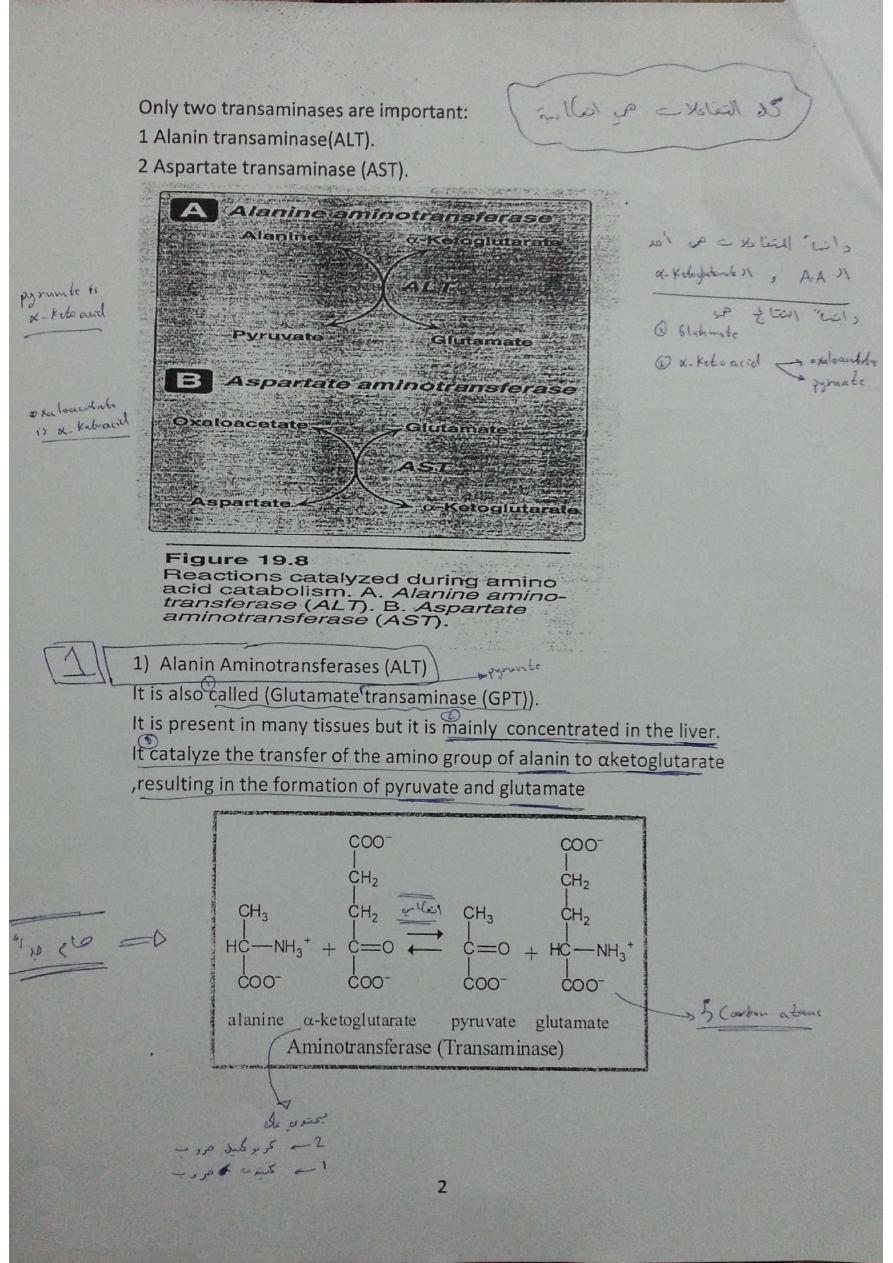 Only two transaminases are important:
1 Alanin transaminase(ALT).
2 Aspartate transaminase (AST).
كل التفاعلات هي انعكاسية
A Alanine aminotransferase
Alanine α-Ketoglutarate
ALT
Pyruvate Glutamate
B Aspartate aminotransferase
Oxaloacetate Glutamate
AST
Aspartate α-Ketoglutarate
pyruvate is
α-Keto acid
oxaloacetate
is α-Ketoacid
دائماً المتفاعلات هي أحد
الـ A.A و الـ α-Ketoglutarate
دائماً النتائج هي
① Glutamate
② α-Ketoacid → oxaloacetate
→ pyruvate
Figure 19.8
Reactions catalyzed during amino
acid catabolism. A. Alanine amino-
transferase (ALT). B. Aspartate
aminotransferase (AST).
1
1) Alanin Aminotransferases (ALT) pyruvate
It is also called (Glutamate transaminase (GPT)).
It is present in many tissues but it is mainly concentrated in the liver.
It catalyze the transfer of the amino group of alanin to αketoglutarate
,resulting in the formation of pyruvate and glutamate
COO⁻ COO⁻
CH₂ CH₂
CH₃ CH₂ انعكاسي CH₃ CH₂
HC—NH₃⁺ + C=O ⇄ C=O + HC—NH₃⁺
COO⁻ COO⁻ COO⁻ COO⁻
alanine α-ketoglutarate pyruvate glutamate
Aminotransferase (Transaminase)
هام جداً
5 Carbon atoms
يحتوي على
2 كربوكسيل جروب
1 كيتون جروب
2